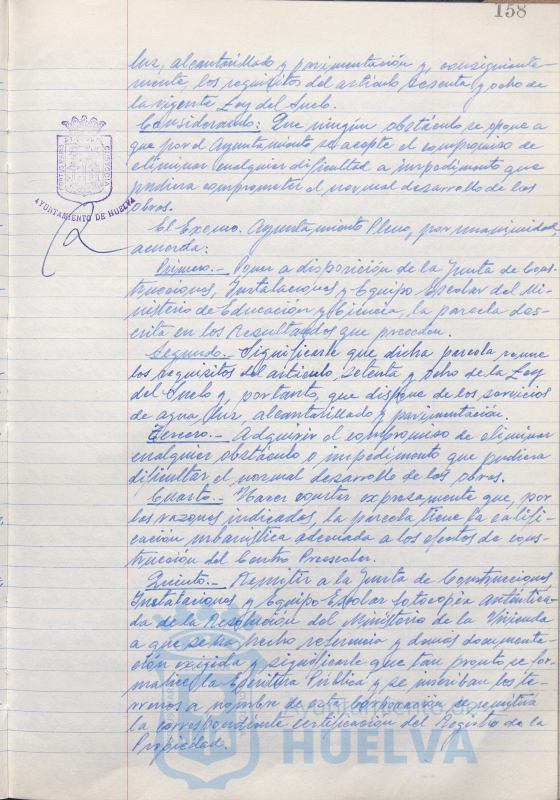 158
luz, alcantarillado y pavimentación y, consiguiente-
mente, los requisitos del artículo sesenta y ocho de
la vigente Ley del Suelo.
Considerando: Que ningún obstáculo se opone a
que por el Ayuntamiento se acepte el compromiso de
eliminar cualquier dificultad o impedimento que
pudiera comprometer el normal desarrollo de las
obras.
AYUNTAMIENTO DE HUELVA
El Excmo. Ayuntamiento Pleno, por unanimidad,
acuerda:
Primero.- Poner a disposición de la Junta de Cons-
trucciones, Instalaciones y Equipo Escolar del Mi-
nisterio de Educación y Ciencia, la parcela des-
crita en los Resultandos que preceden.
Segundo.- Significarle que dicha parcela reune
los requisitos del artículo, setenta y ocho de la Ley
del Suelo y, por tanto, que dispone de los servicios
de agua, luz, alcantarillado y pavimentación.
Tercero.- Adquirir el compromiso de eliminar
cualquier obstáculo o impedimento que pudiera
dificultar el normal desarrollo de las obras.
Cuarto.- Hacer constar expresamente que, por
las razones indicadas, la parcela tiene la califi-
cación urbanística adecuada a los efectos de cons-
trucción del Centro Preescolar.
Quinto.- Remitir a la Junta de Construcciones
Instalaciones y Equipo Escolar fotocopia autentica-
da de la Resolución del Ministerio de la Vivienda
a que se ha hecho referencia y demas documenta
ción exigida y significarle que tan pronto se for-
malice la Escritura Pública y se inscriban los te-
rrenos a nombre de esta Corporación se remitirá
la correspondiente certificación del Registro de la
Propiedad.
HUELVA